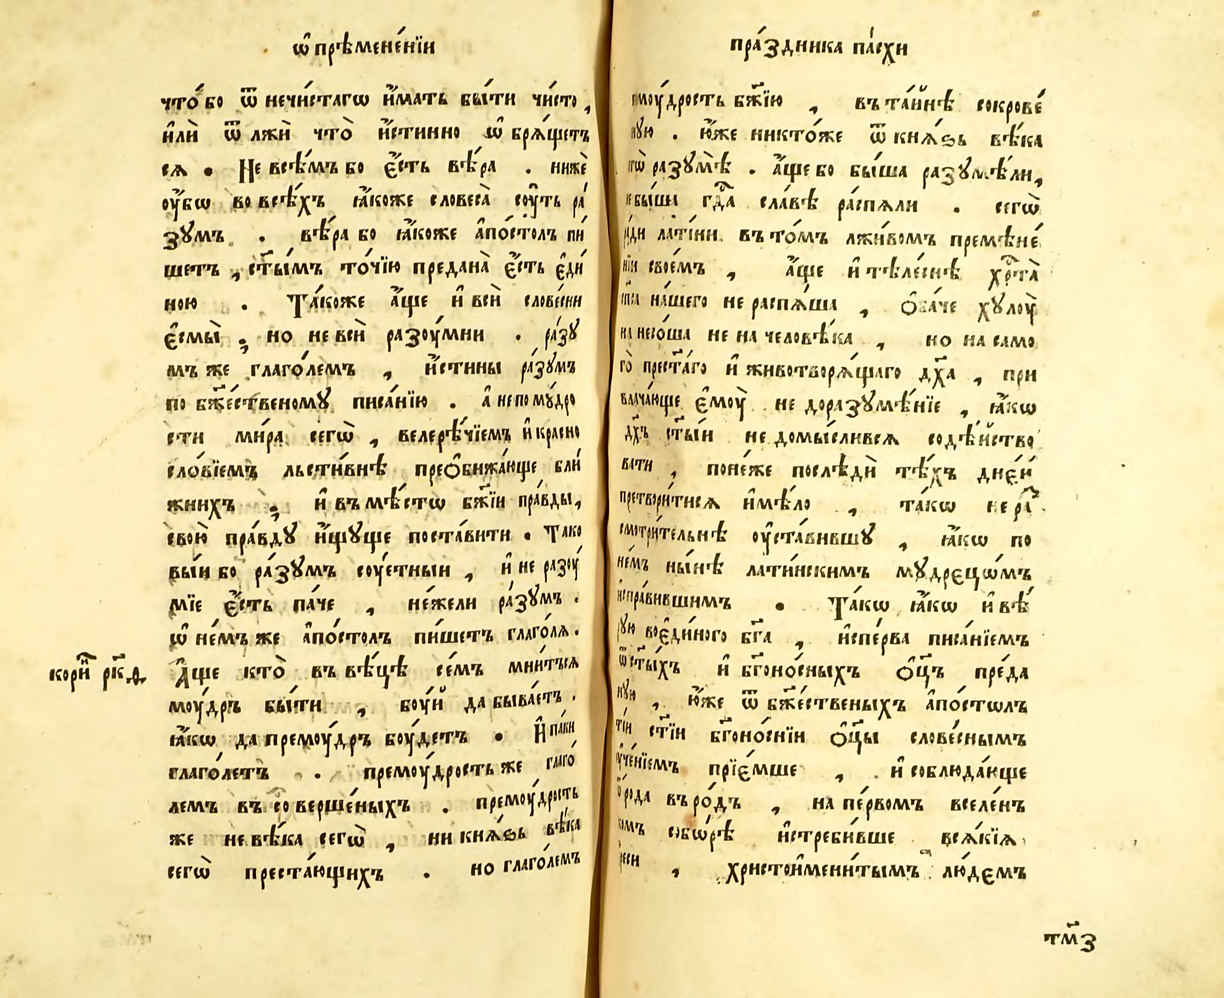 ѡ҆ премене́нїи
что́ бо ѿ нечи́стагѡ и҆́мать бы́ти чи́сто ,
и҆лѝ ѿ лжѝ что̀ и҆́стинно ѡ҆брѧ́щетъ
сѧ . Не всѣ́мъ бо є҆́сть вѣ́ра . нижѐ
оу҆́бѡ во всѣ́хъ ꙗ҆́коже словеса̀ сꙋ́ть ра́
зꙋмъ . вѣ́ра бо ꙗ҆́коже а҆по́столъ пи
шетъ , ст҃ы́мъ то́чїю предана̀ є҆́сть є҆ди́
ною . Та́коже а҆́ще и҆ всѝ слове́сни
є҆смы̀ , но не всѝ разоу́мни . ра́зꙋ
мъ же глаго́лемъ , и҆́стины ра́зꙋмъ
по бж҃е́ственомꙋ писа́нїю . а҆ не по мꙋ́дро
сти ми́ра сегѡ̀ , велерѣ́чїемъ и҆ красно
сло́вїемъ льсти́внѣ преѡби́жающе бли́
жнихъ , и҆ въ мѣ́стѡ бж҃їи пра́вды,
свою̀ пра́вдꙋ и҆́щꙋще поста́вити . Тако
вы́и бо ра́зꙋмъ соу́етныи , и҆ не разоу́
мїе є҆́сть па́че , не́жели ра́зꙋмъ .
ѡ҆ не́мъ же а҆по́столъ пи́шетъ глаго́лѧ .
кори́н рк҃д А҆́ще кто̀ въ вѣ́цѣ се́мъ мни́тьсѧ
моу́дръ бы́ти , боу́й да быва́етъ .
ꙗ҆́кѡ да премоу́дръ боу́детъ . И҆ па́ки
глаго́летъ . премоу́дрость же глаго́
лемъ въ соверше́ныхъ . премоу́дрость
же не вѣ́ка сегѡ̀ , ни кнѧ́ѕь вѣ́ка
сегѡ̀ преста́ющихъ . но глаго́лемъ
пра́здника па́схи
моу́дрость бж҃їю , въ та́йнѣ сокрове́
ную . ю҆́же никто́же ѿ кнѧ́ѕь вѣ́ка
сегѡ̀ разꙋмѣ̀ . а҆́ще бо бы́ша разꙋмѣ́ли,
не бы́ша гд҃а сла́вѣ распѧ́ли . сегѡ̀
ра́ди лати́ни въ то́мъ лжи́вомъ премѣне́
нїи свое́мъ , а҆́ще и҆ тѣле́снѣ хр҃та̀
сп҃са на́шего не распѧ́ша , ѻ҆ба́че хꙋлоу̀
нанесо́ша не на человѣ́ка , но на само
го̀ прест҃а́го и҆ животворѧ́щаго дх҃а , при
влача́юще є҆моу̀ не доразꙋмѣ́нїе , ꙗ҆́кѡ
дх҃ъ ст҃ы́и не домы́сливсѧ содѣ́йство
вати , поне́же послѣдѝ тѣ́хъ дне́й
претвори́тисѧ и҆мѣ́ло , та́кѡ не ра́з
смотри́тельнѣ оу҆ста́вившꙋ , ꙗ҆́кѡ по
не́мъ ны́нѣ лати́нскимъ мꙋдрецѡ́мъ
испра́вившимъ . Та́кѡ ꙗ҆́кѡ и҆ вѣ́
рꙋю во є҆ди́ного бг҃а , и҆спе́рва писа́нїемъ
ѿ ст҃ы́хъ и҆ бг҃оно́сныхъ ѻ҆ц҃ъ преда́
ную , ю҆́же ѿ бж҃е́ственыхъ а҆по́столъ
тїи ст҃і́и бг҃оно́снїи ѻ҆ц҃ы слове́снымъ
оуче́нїемъ прїе́мше , и҆ соблюда́юще
ѿ рода въ ро́дъ , на пе́рвомъ вселе́н
комъ собѡ́рѣ и҆стреби́вше всѧ́кїѧ
е́реси , христоимени́тымъ лю́демъ
тм҃з